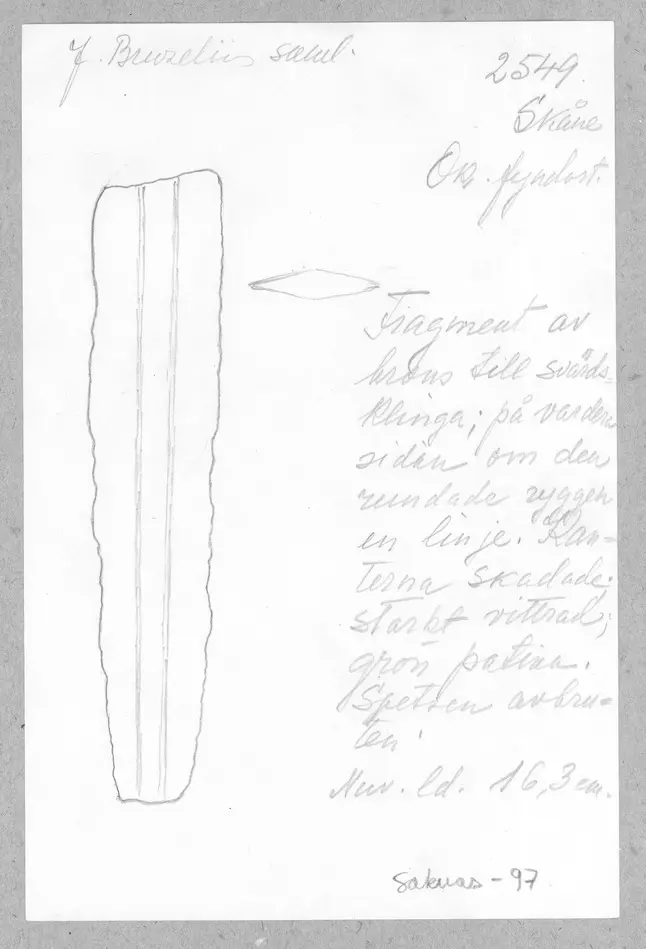 J. Bruzelius saml.
2549.
Skåne
Ok. fyndort.
Fragment av
brons till svärds-
klinga; på vardera
sidan om den
rundade ryggen
en linje. Kan-
terna skadade;
starkt vittrad;
grön patina.
Spetsen avbru-
ten.
Nuv. ld. 16,3 cm.
Saknas - 97